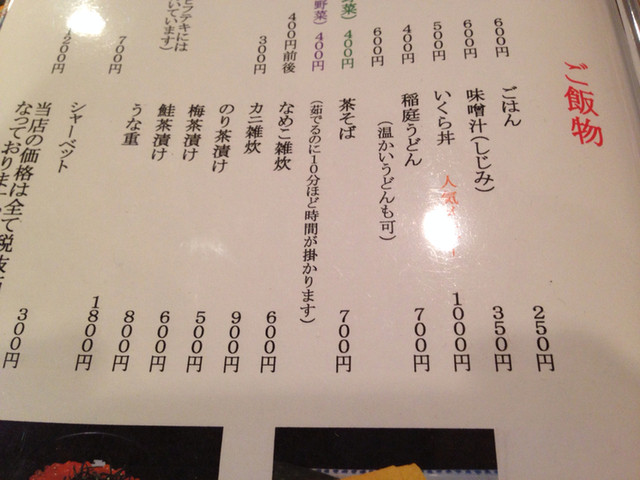 600円
600円
500円
400円
600円
菜) 400円
野菜) 400円
400円前後
300円
フテキには
いています)
700円
200円
ご飯物
ごはん 250円
味噌汁(しじみ) 350円
いくら丼 人気 1000円
稲庭うどん 700円
(温かいうどんも可)
茶そば 700円
(茹でるのに10分ほど時間が掛かります)
なめこ雑炊 600円
カニ雑炊 900円
のり茶漬け 500円
梅茶漬け 600円
鮭茶漬け 800円
うな重 1800円
シャーベット 300円
当店の価格は全て税抜
なっておりま